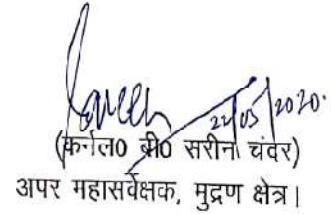 Sareen
22/05/2020.
(कर्नल0 बी0 सरीन चंदर)
अपर महासर्वेक्षक, मुद्रण क्षेत्र।